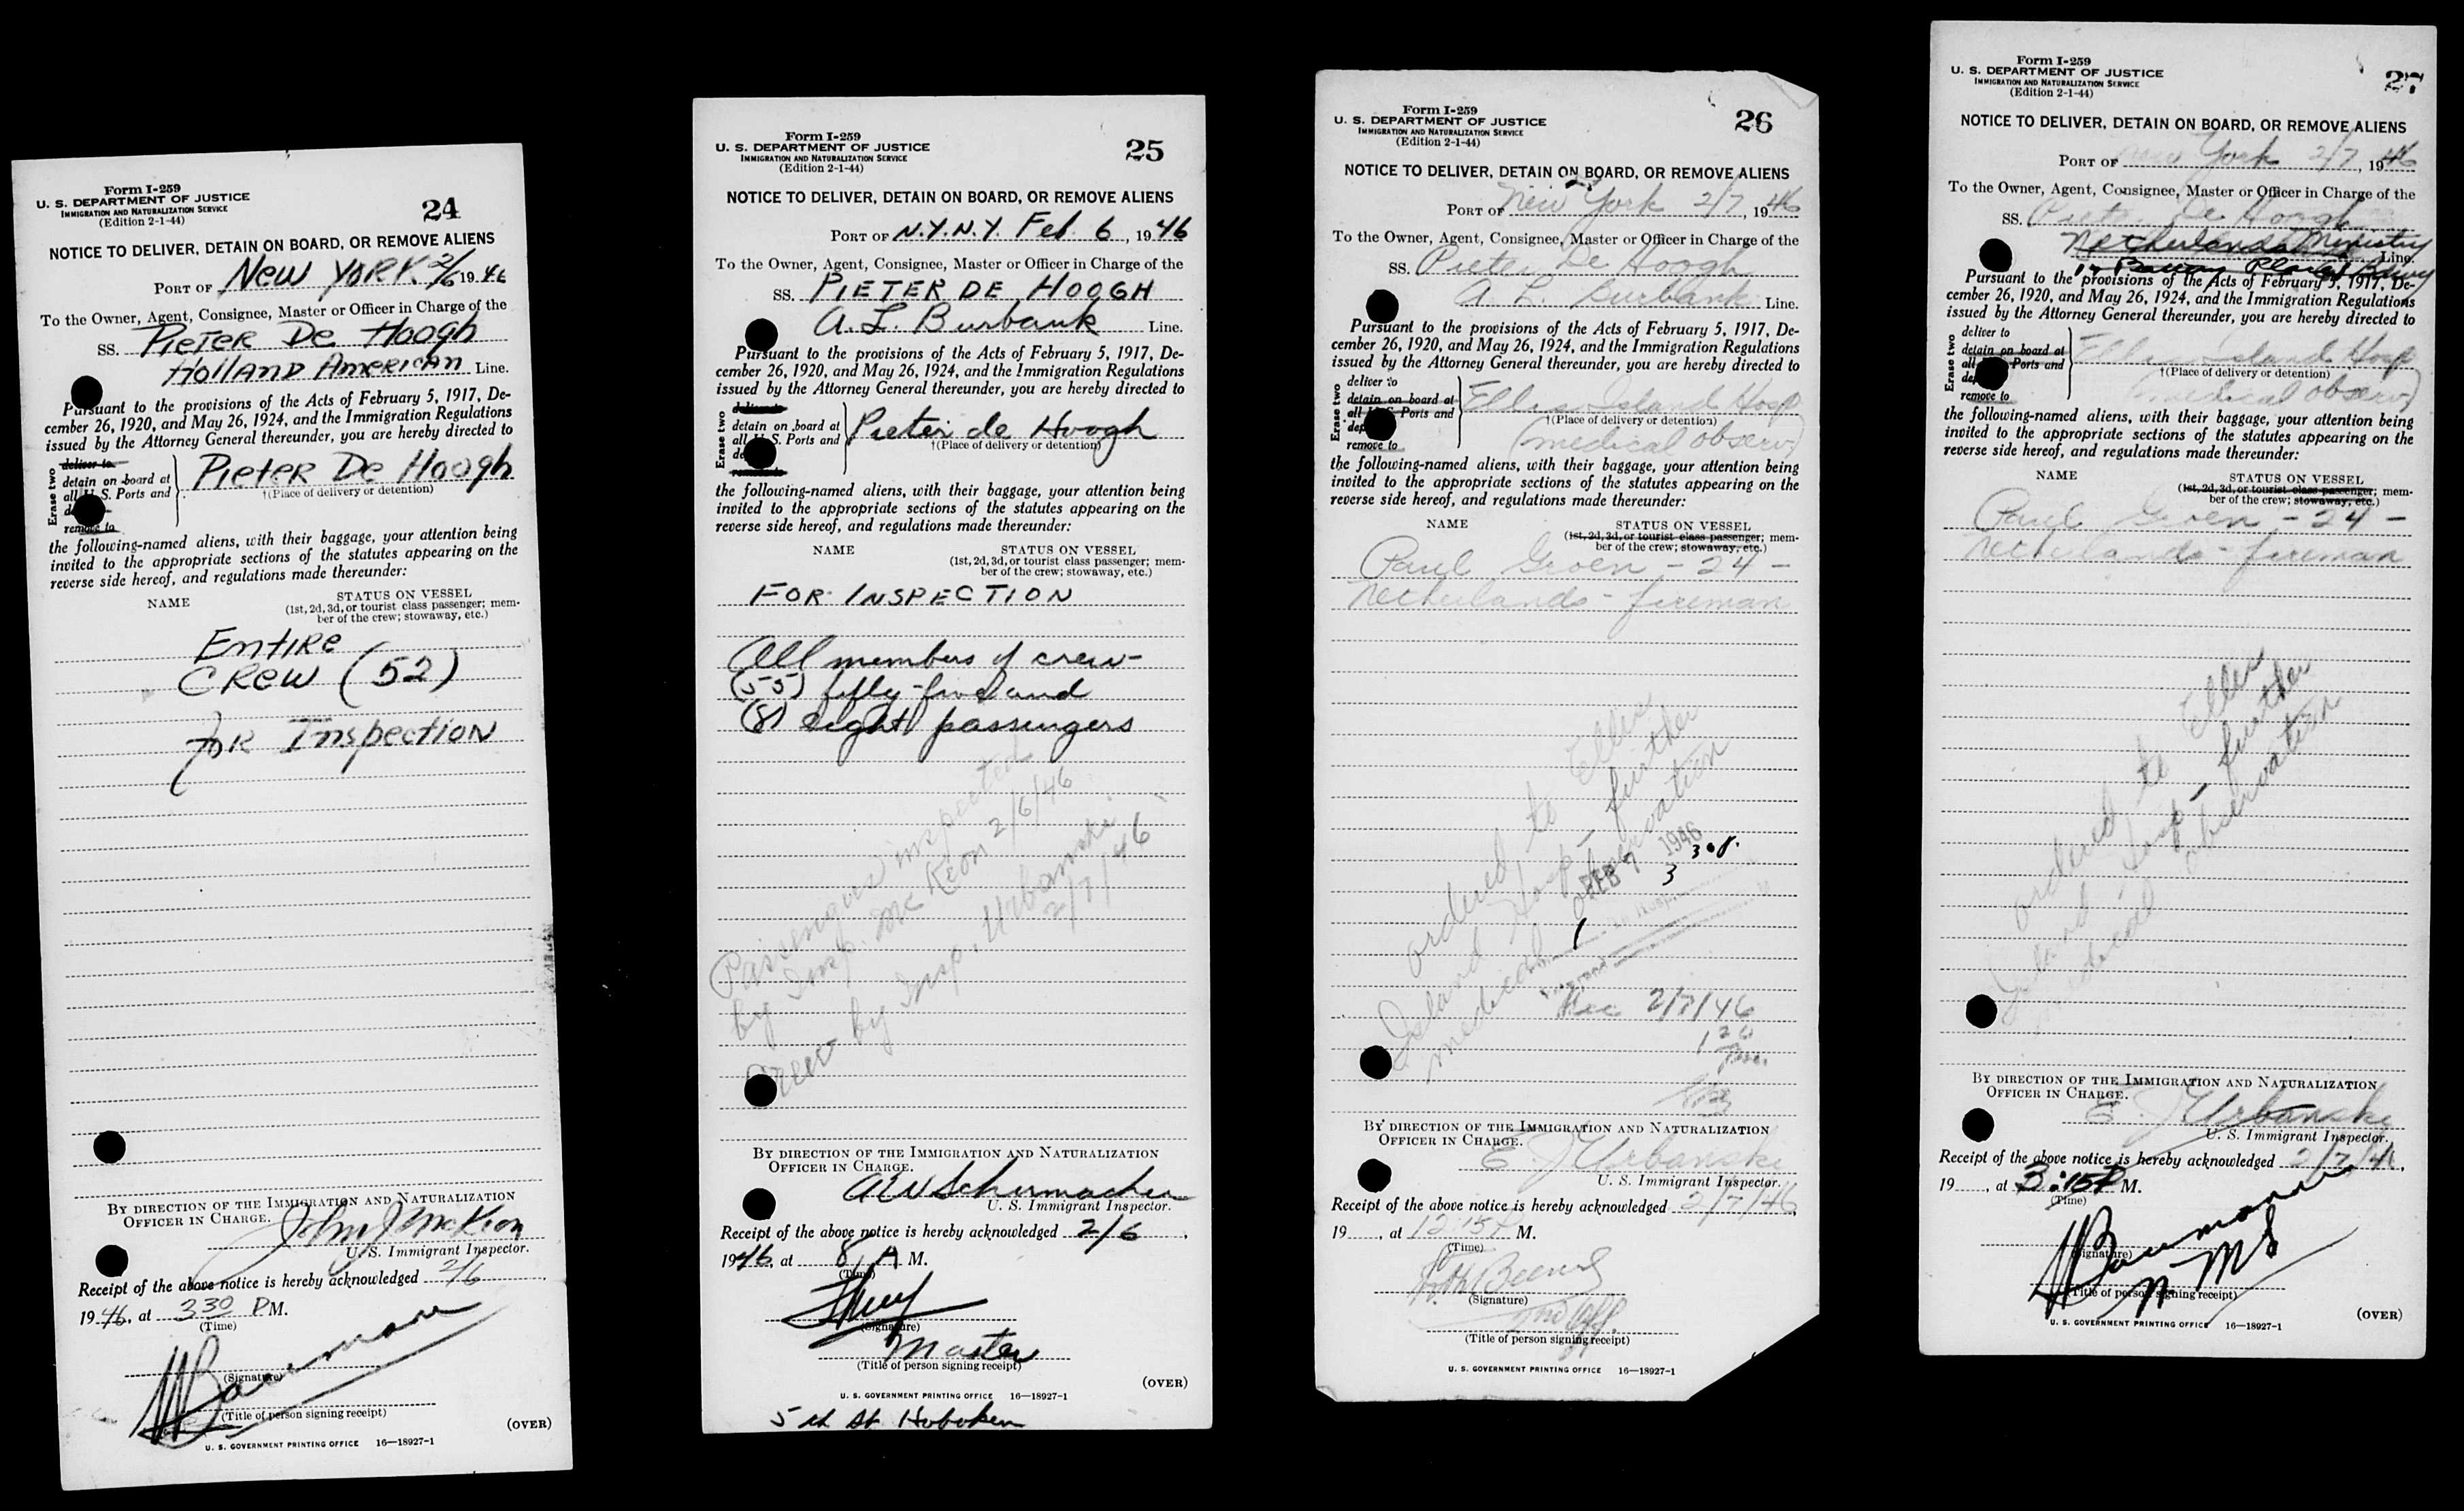 Form I-259
U. S. DEPARTMENT OF JUSTICE
IMMIGRATION AND NATURALIZATION SERVICE
(Edition 2-1-44)
24
NOTICE TO DELIVER, DETAIN ON BOARD, OR REMOVE ALIENS
PORT OF New YORK. 2/6 1946
To the Owner, Agent, Consignee, Master or Officer in Charge of the
SS. PIETER De Hoogh
HOLLAND AMERICAN Line.
Pursuant to the provisions of the Acts of February 5, 1917, De-
cember 26, 1920, and May 26, 1924, and the Immigration Regulations
issued by the Attorney General thereunder, you are hereby directed to
Erase two
deliver to
detain on board at
all U. S. Ports and
remove to
Pieter De Hoogh
†(Place of delivery or detention)
the following-named aliens, with their baggage, your attention being
invited to the appropriate sections of the statutes appearing on the
reverse side hereof, and regulations made thereunder:
NAME
STATUS ON VESSEL
(1st, 2d, 3d, or tourist class passenger; mem-
ber of the crew; stowaway, etc.)
Entire
CREW (52)
FOR Inspection
BY DIRECTION OF THE IMMIGRATION AND NATURALIZATION
OFFICER IN CHARGE.
John J McKeon
U. S. Immigrant Inspector.
Receipt of the above notice is hereby acknowledged 2/6
1946, at 3 30 P M.
(Time)
(Signature)
(Title of person signing receipt)
(OVER)
U. S. GOVERNMENT PRINTING OFFICE 16—18927-1
Form I-259
U. S. DEPARTMENT OF JUSTICE
IMMIGRATION AND NATURALIZATION SERVICE
(Edition 2-1-44)
25
NOTICE TO DELIVER, DETAIN ON BOARD, OR REMOVE ALIENS
PORT OF N.Y.N.Y. Feb 6, 1946
To the Owner, Agent, Consignee, Master or Officer in Charge of the
SS. PIETER DE HOOGH
A. L. Burbank Line.
Pursuant to the provisions of the Acts of February 5, 1917, De-
cember 26, 1920, and May 26, 1924, and the Immigration Regulations
issued by the Attorney General thereunder, you are hereby directed to
Erase two
detain on board at
all U. S. Ports and
Pieter de Hoogh
†(Place of delivery or detention)
the following-named aliens, with their baggage, your attention being
invited to the appropriate sections of the statutes appearing on the
reverse side hereof, and regulations made thereunder:
NAME
STATUS ON VESSEL
(1st, 2d, 3d, or tourist class passenger; mem-
ber of the crew; stowaway, etc.)
FOR INSPECTION
All members of crew-
(55) fifty-five and
(8) eight passengers
Passengers inspected
by Insp. McKeon 2/6/46
Crew by Insp. Urbanski
2/7/46
BY DIRECTION OF THE IMMIGRATION AND NATURALIZATION
OFFICER IN CHARGE.
A W Schumacher
U. S. Immigrant Inspector.
Receipt of the above notice is hereby acknowledged 2/6.
1946, at 8 A M.
(Time)
(Signature)
Master
(Title of person signing receipt)
(OVER)
U. S. GOVERNMENT PRINTING OFFICE 16—18927-1
5 th St Hoboken
Form I-259
U. S. DEPARTMENT OF JUSTICE
IMMIGRATION AND NATURALIZATION SERVICE
(Edition 2-1-44)
26
NOTICE TO DELIVER, DETAIN ON BOARD, OR REMOVE ALIENS
PORT OF New York 2/7, 1946
To the Owner, Agent, Consignee, Master or Officer in Charge of the
SS. Pieter De Hoogh
A. L. Burbank Line.
Pursuant to the provisions of the Acts of February 5, 1917, De-
cember 26, 1920, and May 26, 1924, and the Immigration Regulations
issued by the Attorney General thereunder, you are hereby directed to
Erase two
deliver to
detain on board at
all U. S. Ports and
remove to
Ellis Island Hosp
†(Place of delivery or detention)
(medical observ)
the following-named aliens, with their baggage, your attention being
invited to the appropriate sections of the statutes appearing on the
reverse side hereof, and regulations made thereunder:
NAME
STATUS ON VESSEL
(1st, 2d, 3d, or tourist class passenger; mem-
ber of the crew; stowaway, etc.)
Paul Groen - 24 -
Netherlands - fireman
ordered to Ellis
Island Hosp - further
medical observation
FEB 7 1946
Rec 2/7/46
1 20
BY DIRECTION OF THE IMMIGRATION AND NATURALIZATION
OFFICER IN CHARGE.
E J Urbanski
U. S. Immigrant Inspector.
Receipt of the above notice is hereby acknowledged 2/7/46,
19 , at 12:15 P M.
(Time)
(Signature)
2nd Off.
(Title of person signing receipt)
U. S. GOVERNMENT PRINTING OFFICE 16—18927-1
Form I-259
U. S. DEPARTMENT OF JUSTICE
IMMIGRATION AND NATURALIZATION SERVICE
(Edition 2-1-44)
27
NOTICE TO DELIVER, DETAIN ON BOARD, OR REMOVE ALIENS
PORT OF New York 2/7, 1946
To the Owner, Agent, Consignee, Master or Officer in Charge of the
SS. Pieter De Hoogh
Netherlands Ministry
Line.
Pursuant to the provisions of the Acts of February 5, 1917, De-
cember 26, 1920, and May 26, 1924, and the Immigration Regulations
issued by the Attorney General thereunder, you are hereby directed to
Erase two
deliver to
detain on board at
all U. S. Ports and
remove to
Ellis Island Hosp
†(Place of delivery or detention)
(medical observ)
the following-named aliens, with their baggage, your attention being
invited to the appropriate sections of the statutes appearing on the
reverse side hereof, and regulations made thereunder:
NAME
STATUS ON VESSEL
(1st, 2d, 3d, or tourist class passenger; mem-
ber of the crew; stowaway, etc.)
Paul Groen - 24 -
Netherlands - fireman
ordered to Ellis
Island Hosp - further
medical observation
BY DIRECTION OF THE IMMIGRATION AND NATURALIZATION
OFFICER IN CHARGE.
E J Urbanski
U. S. Immigrant Inspector.
Receipt of the above notice is hereby acknowledged 2/7/46,
19 , at 3:15 P M.
(Time)
(Signature)
(Title of person signing receipt)
(OVER)
U. S. GOVERNMENT PRINTING OFFICE 16—18927-1